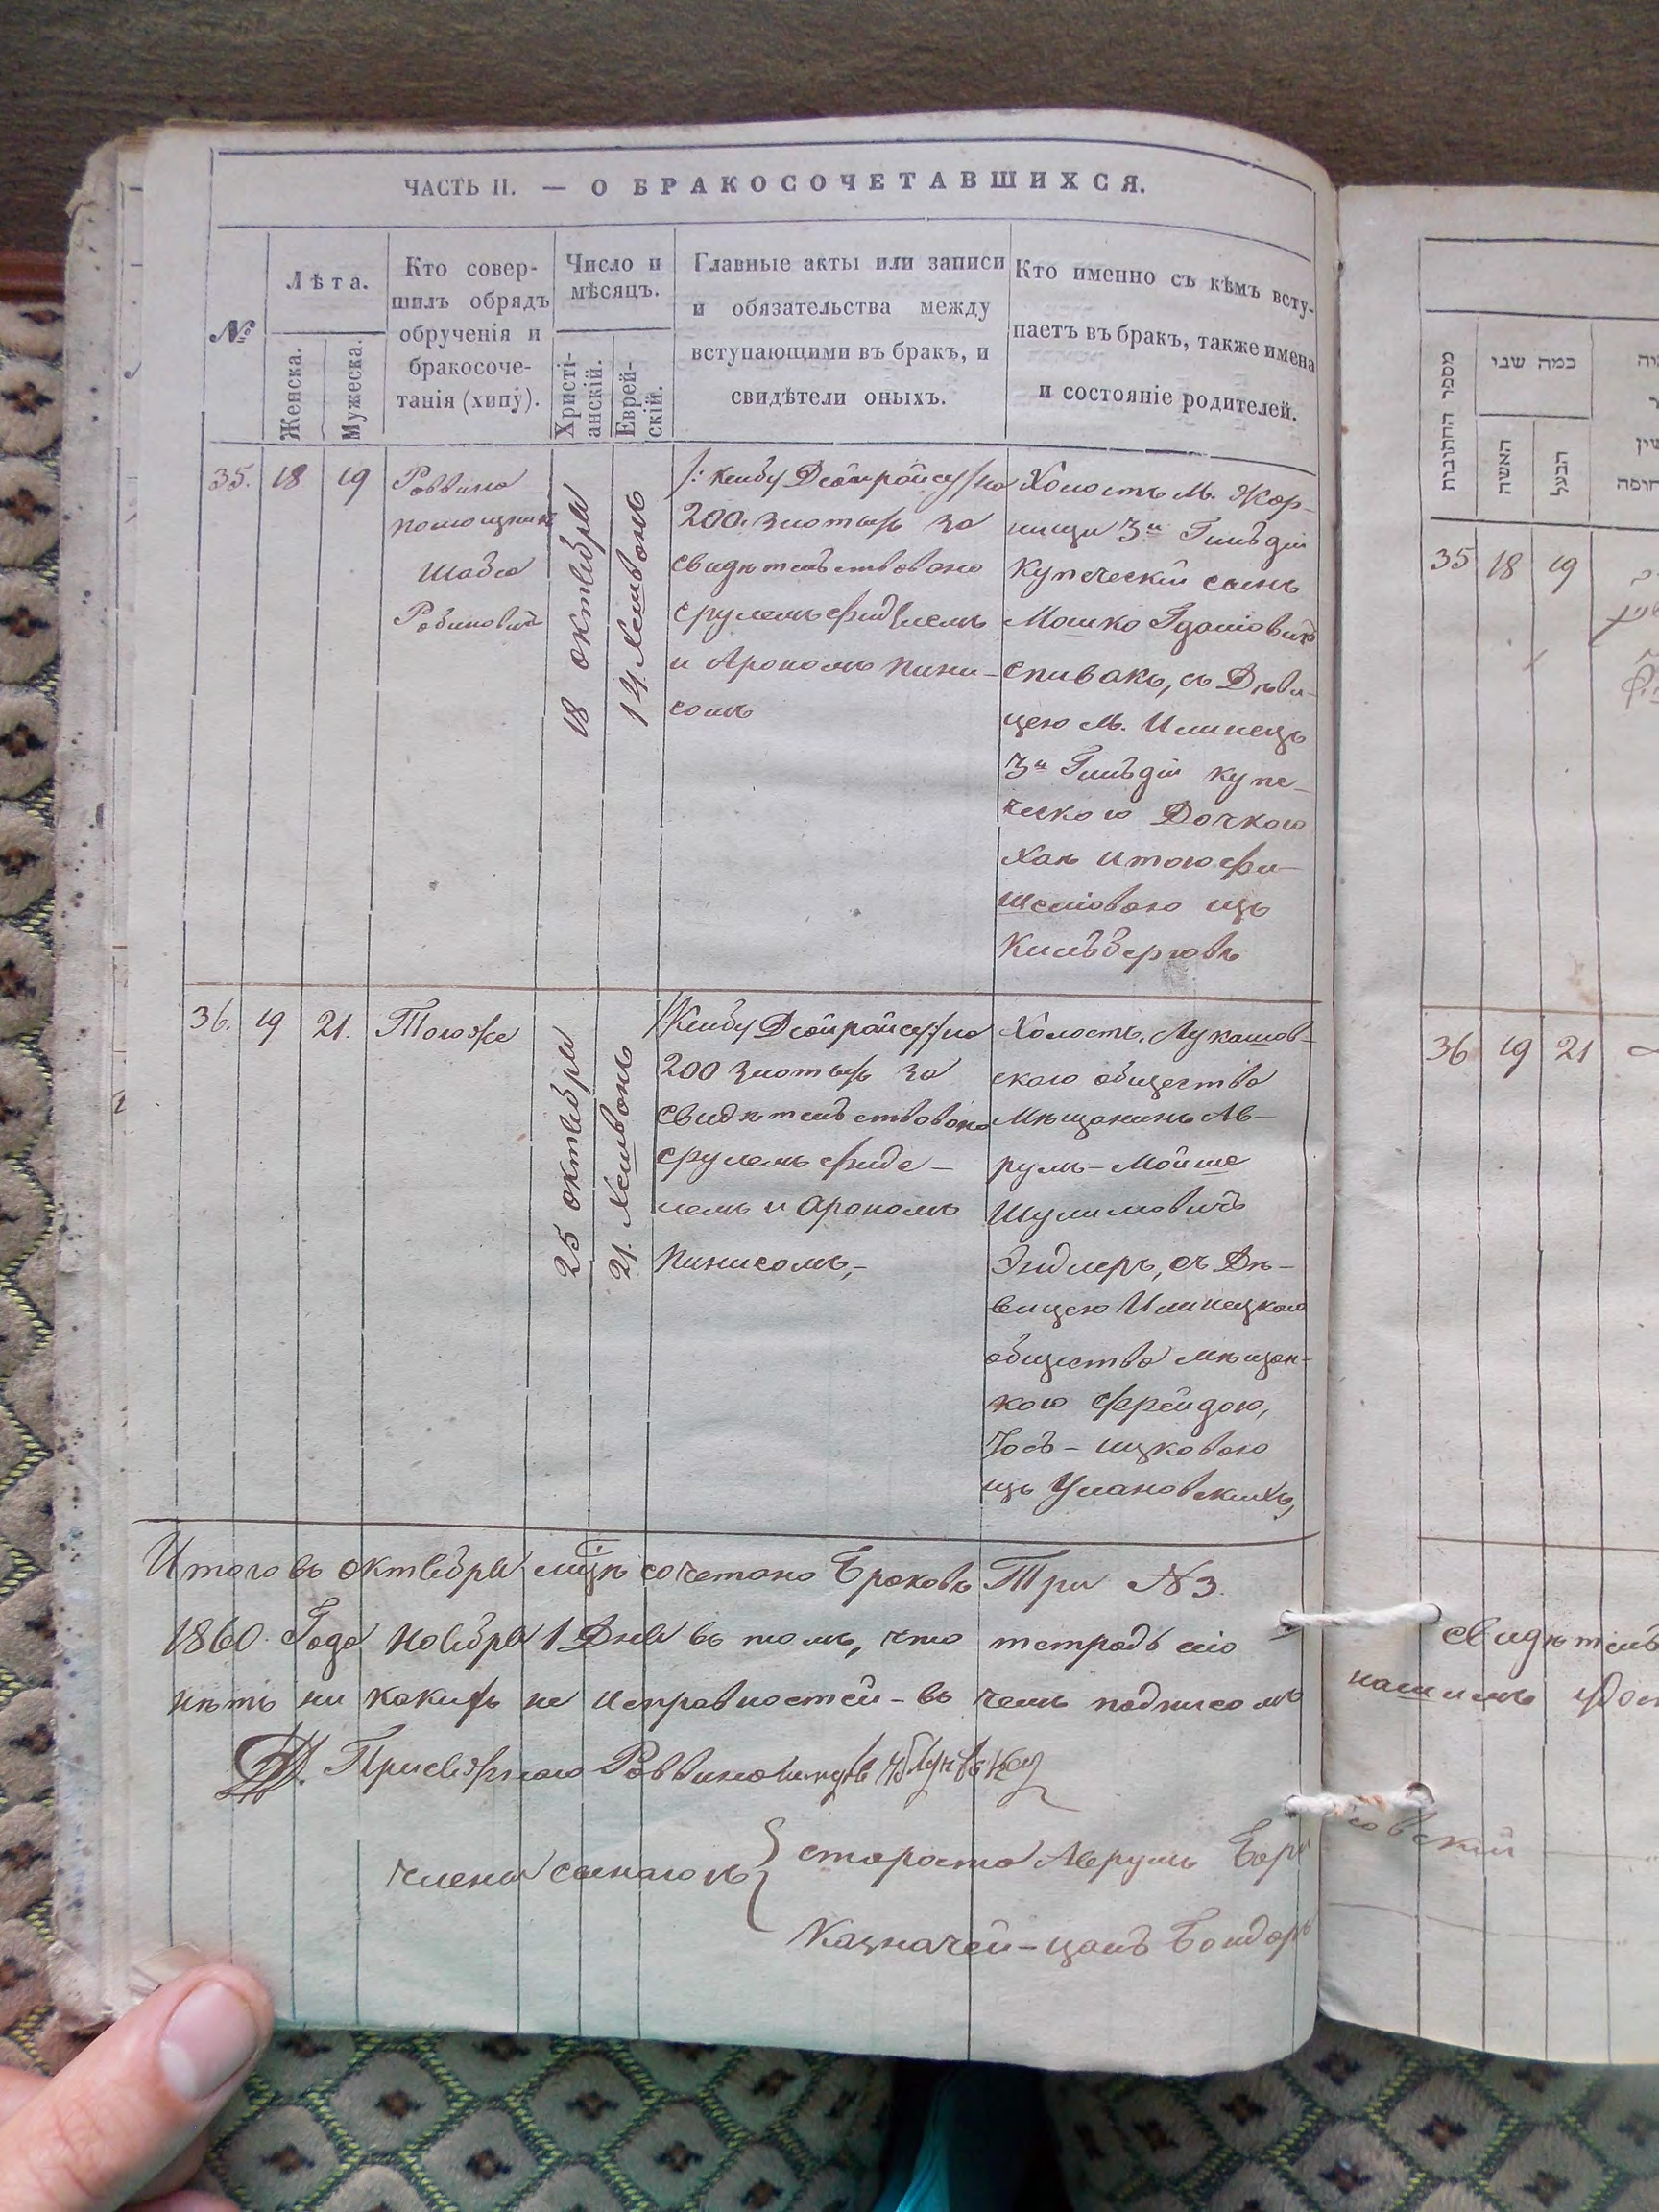 ЧАСТЬ II. — О БРАКОСОЧЕТАВШИХСЯ.
№
Лѣта.
Женска.
Мужеска.
Кто совер-
шилъ обрядъ
обрученія и
бракосоче-
танія (хипу).
Число и
мѣсяцъ.
Христі-
анскій.
Еврей-
скій.
Главные акты или записи
и обязательства между
вступающими въ бракъ, и
свидѣтели оныхъ.
Кто именно съ кѣмъ всту-
паетъ въ бракъ, также имена
и состояніе родителей.
35. 18 19
Раввина
помощникъ
Шабса
Рабиновичъ
18 октября
14. Хешвонъ
200. злотыхъ за
свидѣтельствовано
Сруlемъ Фиделемъ
и Арономъ Пини-
сомъ
Холостъ М. Жор-
нищи 3й Гильдіи
Купеческій сынъ
Мошко
Спивакъ, съ Дѣви-
цею М. Илинецъ
3й Гильдіи купе-
ческою Дочкою
Хаю Итою Фи-
шеліовою изъ
Кильберговъ
36. 19 21.
Тогоже
25 октября
21. Хешвонъ
200 злотыхъ за
свидѣтельствовано
Срулемъ Фиде-
лемъ и Арономъ
Пинисомъ,-
Холостъ, Лукашов-
скаго общества
Мѣщанинъ Ав-
румъ-Мойше
Шулимовичъ
Эндлеръ, съ Дѣ-
вицею Илинецкаго
общества мѣщан-
кою Фрейдою,
Іосъ-ицковою
изъ Улановскихъ,
Итого въ октября мцѣ сочетано Браковъ Три N 3.
1860. Года Ноября 1 Дня въ томъ, что тетрадь сію
нѣтъ ни какихъ не исправностей-въ чемъ подписомъ
Присяжнаго Раввина
члены сынагогъ { староста Аврумъ
Казначей-цаль Бондарь
מספר החתונות
כמה שני
האשה
הבעל
35 18 19
36 19 21
свидѣтель
нашимъ